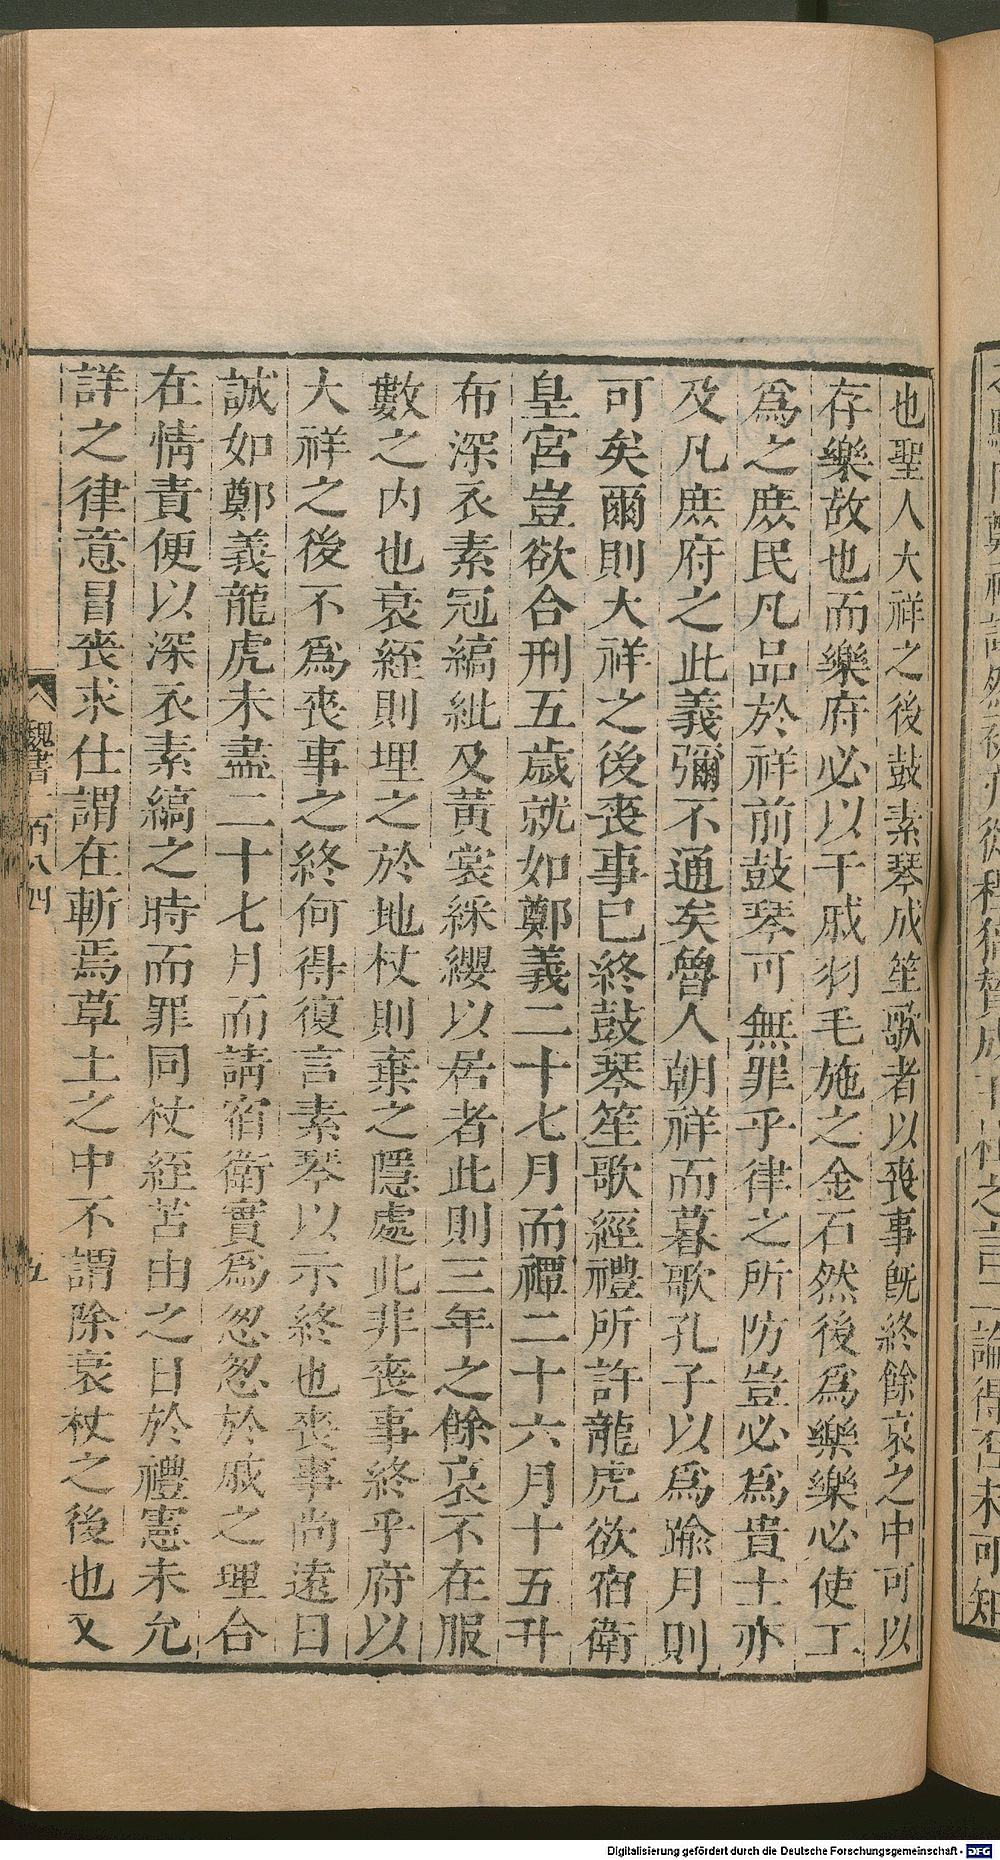 也聖人大祥之後鼓素琴成笙歌者以喪事旣終餘哀之中可以
存樂故也而樂府必以干戚羽毛施之金石然後爲樂樂必使工
爲之庶民凡品於祥前鼓琴可無罪乎律之所防豈必爲貴士亦
及凡庶府之此義彌不通矣魯人朝祥而暮歌孔子以爲踰月則
可矣爾則大祥之後喪事巳終鼓琴笙歌經禮所許龍虎欲宿衛
皇宮豈欲合刑五歲就如鄭義二十七月而禫二十六月十五升
布深衣素冠縞紕及黃裳綵纓以居者此則三年之餘哀不在服
數之内也衰絰則埋之於地杖則棄之隱處此非喪事終乎府以
大祥之後不爲喪事之終何得復言素琴以示終也喪事尚遠日
誠如鄭義龍虎未盡二十七月而請宿衛實爲忽忽於戚之理合
在情責便以深衣素縞之時而罪同杖絰苫凷之日於禮憲未允
詳之律意冒喪求仕謂在斬焉草土之中不謂除衰杖之後也又
魏書一百八四
五
Digitalisierung gefördert durch die Deutsche Forschungsgemeinschaft - DFG